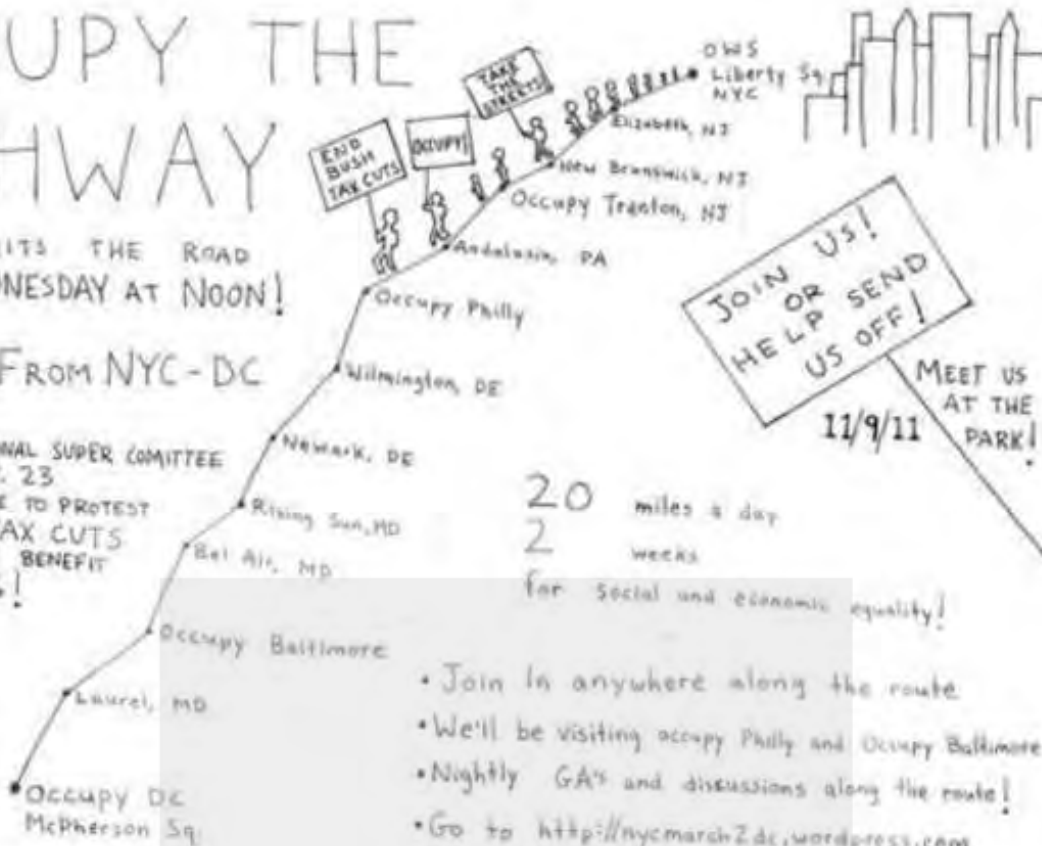 UPY THE
HWAY
ITS THE ROAD
NESDAY AT NOON!
FROM NYC-DC
NAL SUPER COMITTEE
23
E TO PROTEST
TAX CUTS
BENEFIT
!
END
BUSH
TAX CUTS
OCCUPY!
TAKE
THE
STREETS!
OWS
Liberty Sq.
NYC
Elizabeth, NJ
New Brunswick, NJ
Occupy Trenton, NJ
Andalusia, PA
Occupy Philly
Wilmington, DE
Newark, DE
Rising Sun, MD
Bel Air, MD
Occupy Baltimore
Laurel, MD
Occupy DC
McPherson Sq
JOIN US!
OR
HELP SEND
US OFF!
11/9/11
MEET US
AT THE
PARK!
20 miles a day
2 weeks
for social and economic equality!
• Join in anywhere along the route
• We'll be visiting occupy Philly and Occupy Baltimore
• Nightly GA's and discussions along the route!
• Go to http://nycmarch2dc.wordpress.com